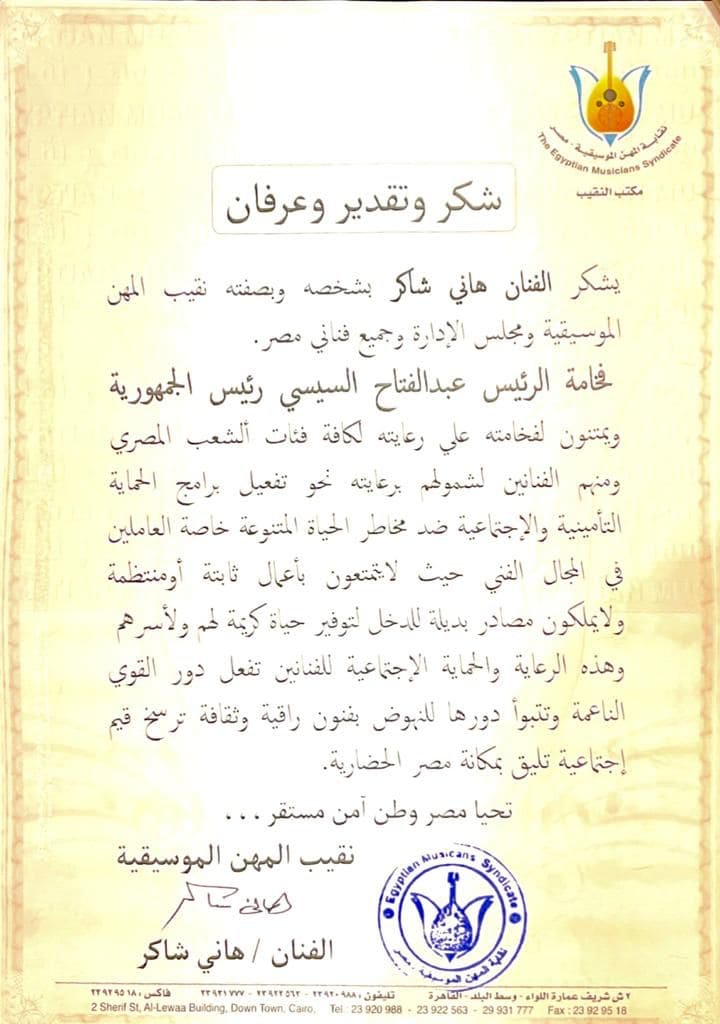 نقابة المهن الموسيقية - مصر
The Egyptian Musicians Syndicate
مكتب النقيب
شكر وتقدير وعرفان
يشكر الفنان هاني شاكر بشخصه وبصفته نقيب المهن
الموسيقية ومجلس الإدارة وجميع فناني مصر.
فخامة الرئيس عبدالفتاح السيسي رئيس الجمهورية
ويمتنون لفخامته علي رعايته لكافة فئات ألشعب المصري
ومنهم الفنانين لشمولهم برعايته نحو تفعيل برامج الحماية
التأمينية والإجتماعية ضد مخاطر الحياة المتنوعة خاصة العاملين
في المجال الفني حيث لايتمتعون بأعمال ثابتة أومنتظمة
ولايملكون مصادر بديلة للدخل لتوفير حياة كريمة لهم ولأسرهم
وهذه الرعاية والحماية الإجتماعية للفنانين تفعل دور القوي
الناعمة وتتبوأ دورها للنهوض بفنون راقية وثقافة ترسخ قيم
إجتماعية تليق بمكانة مصر الحضارية.
تحيا مصر وطن آمن مستقر...
نقيب المهن الموسيقية
هاني شاكر
الفنان / هاني شاكر
Egyptian Musicans Syndicate
نقابة المهن الموسيقية - مصر
٢ ش شريف عمارة اللواء - وسط البلد - القاهرة تليفون : ٢٣٩٢٠٩٨٨ - ٢٣٩٢٢٥٦٣ - ٢٣٩٣١٧٧٧ فاكس : ٢٣٩٢٩٥١٨
2 Sherif St, Al-Lewaa Building, Down Town, Cairo, Tel : 23 920 988 - 23 922 563 - 29 931 777 Fax : 23 92 95 18